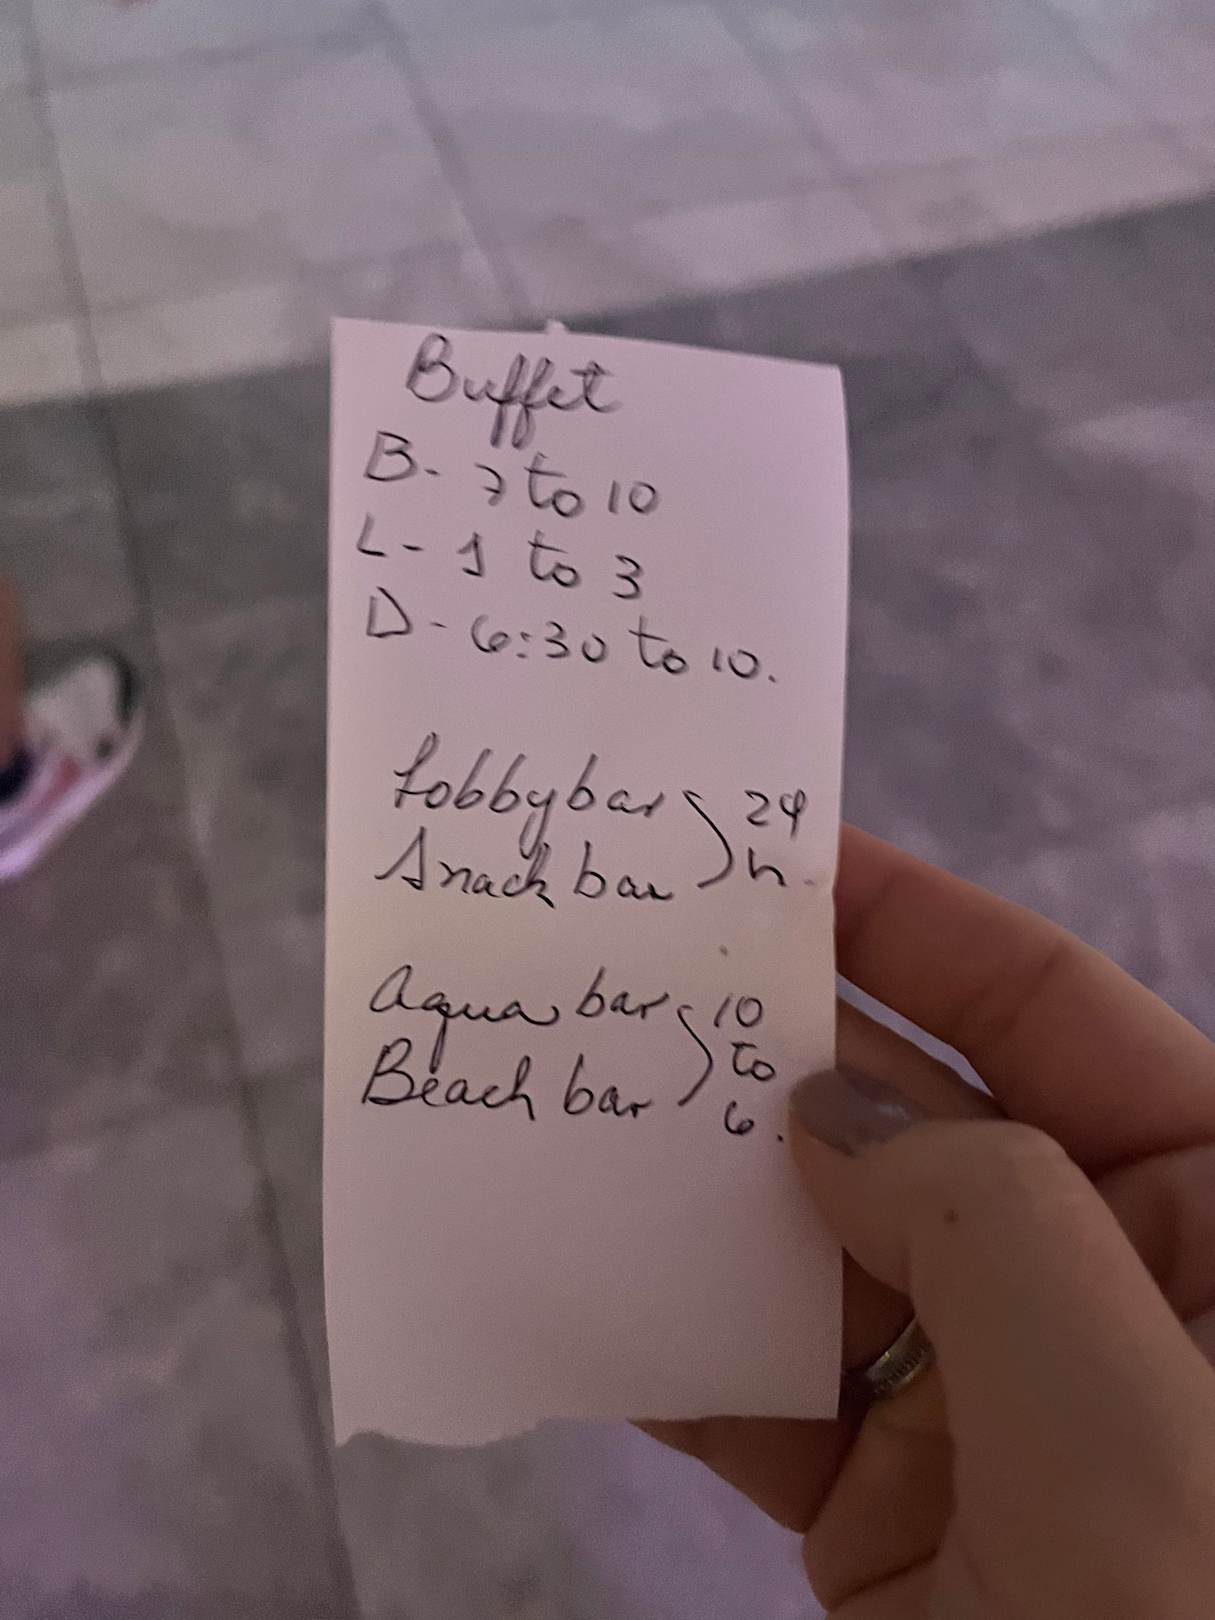 Buffet
B- 7 to 10
L- 1 to 3
D- 6:30 to 10.
Lobbybar
Snack bar
24
h.
Aqua bar
Beach bar
10
to
6.